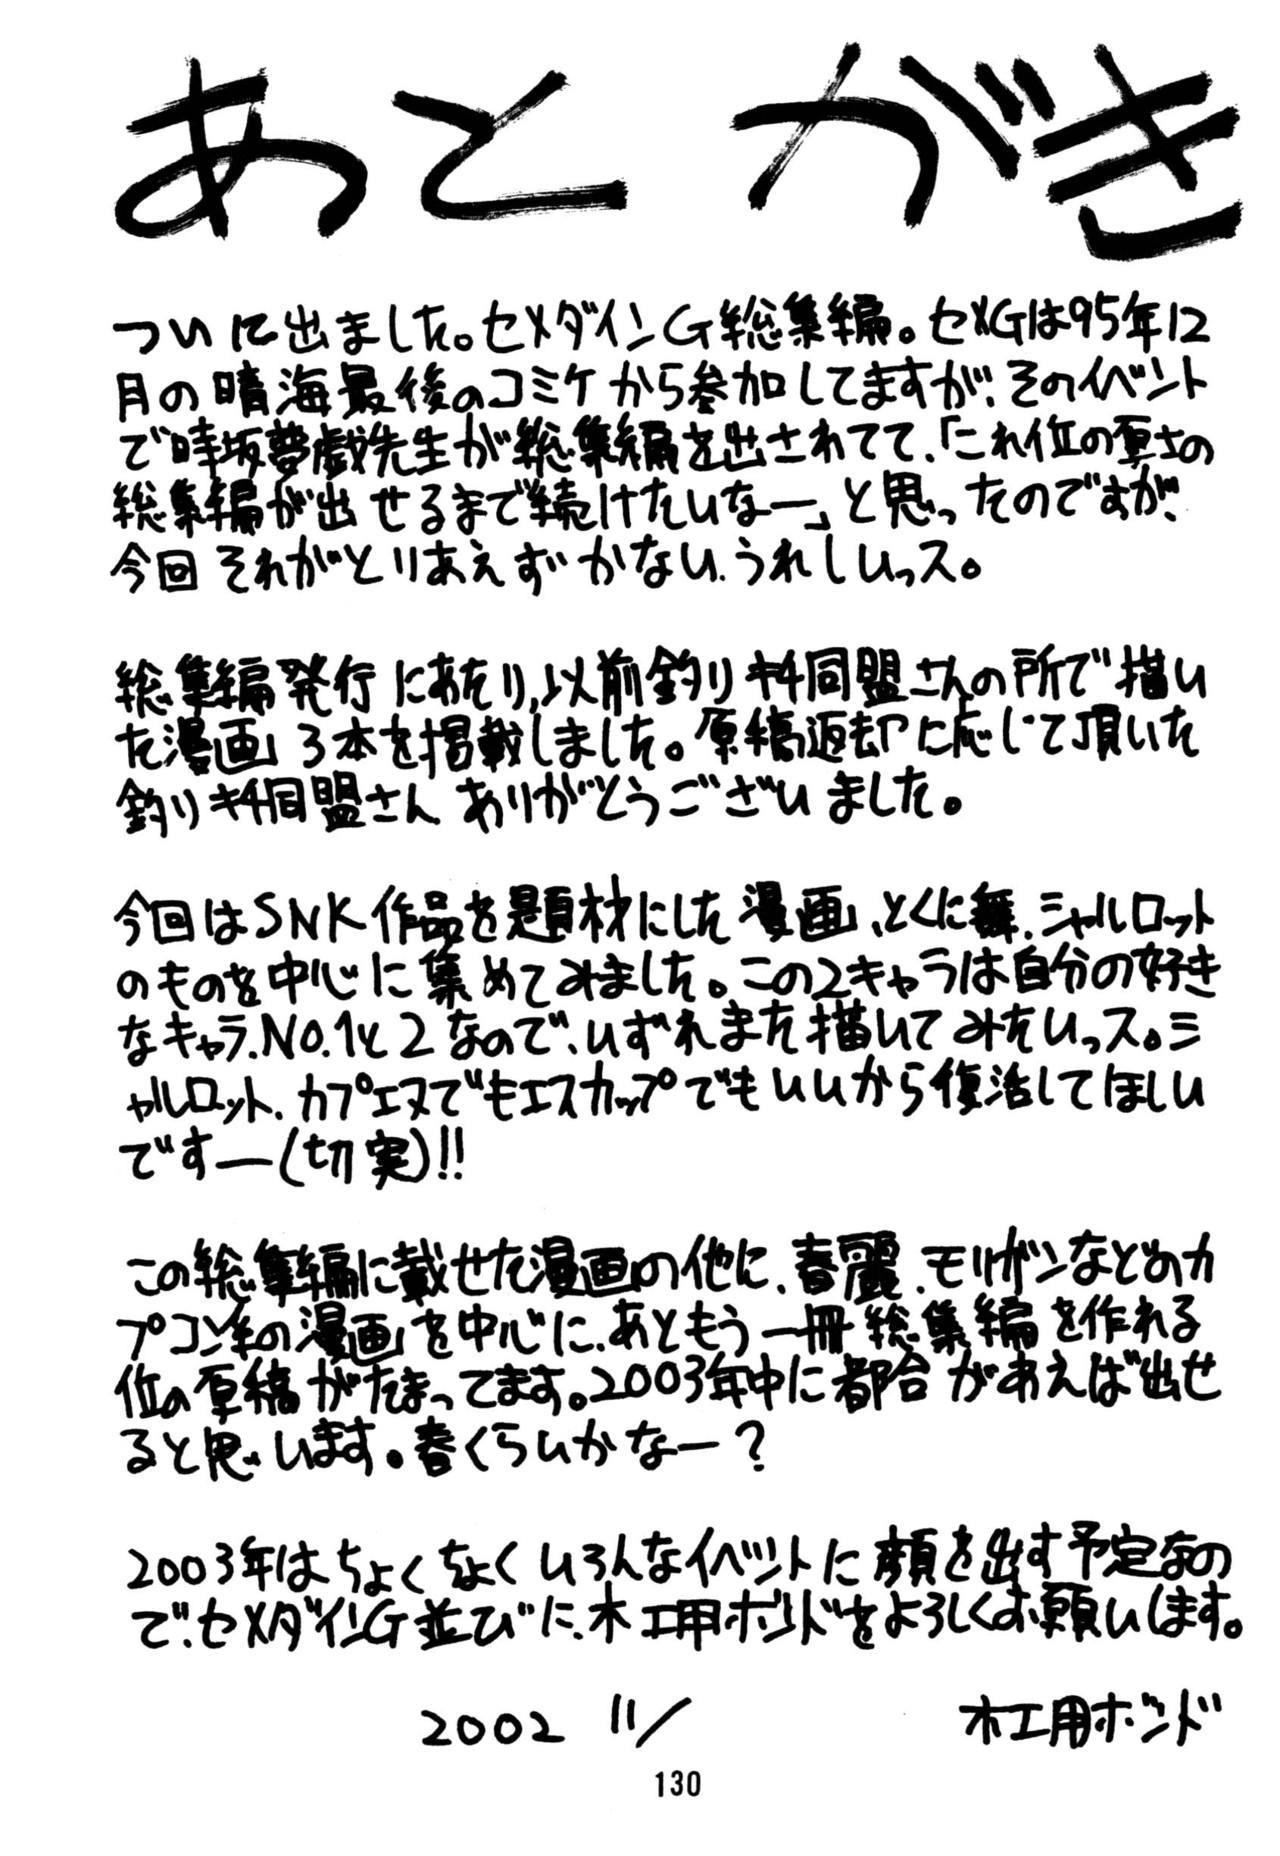 あとがき
ついに出ました。セメダインG総集編。セメGは95年12
月の晴海最後のコミケから参加してますが、そのイベント
で時坂夢戯先生が総集編を出されてて、「これ位の厚さの
総集編が出せるまで続けたいなー」と思ったのですが、
今回それがとりあえずかない、うれしいっス。
総集編発行にあたり、以前釣りキチ同盟さんの所で描い
た漫画3本を掲載しました。原稿返却に応じて頂いた
釣りキチ同盟さんありがとうございました。
今回はSNK作品を題材にした漫画、とくに舞、シャルロット
のものを中心に集めてみました。この2キャラは自分の好き
なキャラ、No.1と2なので、いずれまた描いてみたいっス。シ
ャルロット、カプエヌでもエスカップでもいいから復活してほしい
ですー(切実)!!
この総集編に載せた漫画の他に、春麗、モリガンなどのカ
プコン系の漫画を中心に、あともう一冊総集編を作れる
位の原稿がたまってます。2003年中に都合があえば出せ
ると思います。春くらいかなー?
2003年はちょくちょくいろんなイベントに顔を出す予定なの
で、セメダインG並びに、木工用ボンドをよろしくお願いします。
2002 11/
木工用ボンド
130